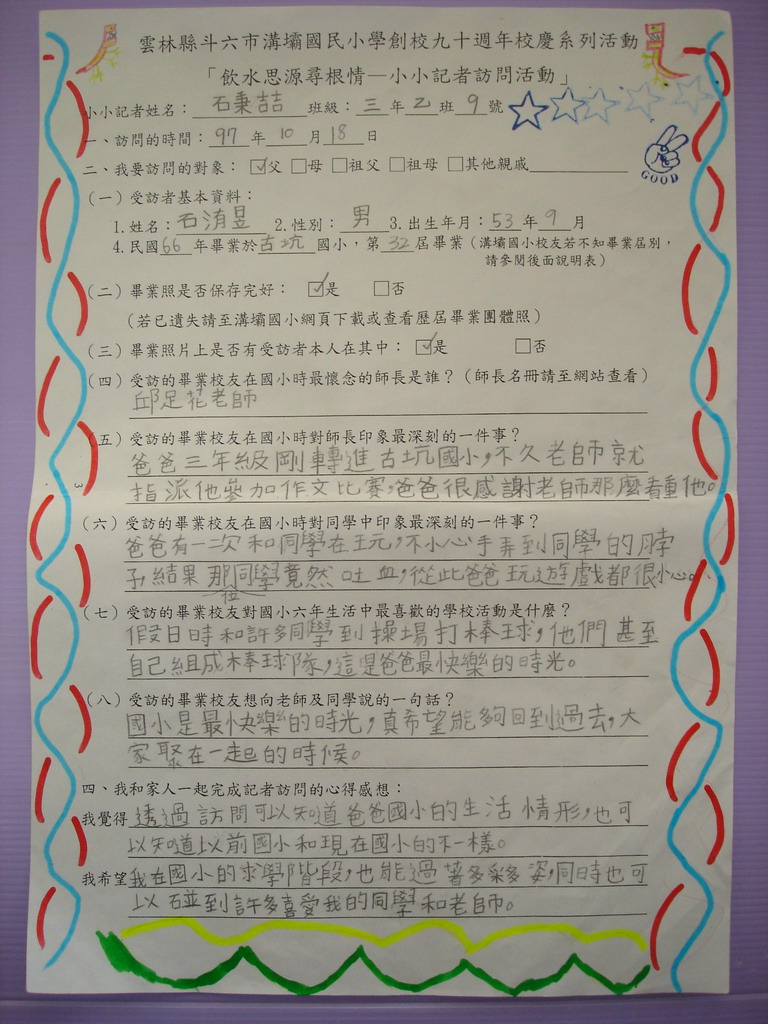 雲林縣斗六市溝壩國民小學創校九十週年校慶系列活動
「飲水思源尋根情—小小記者訪問活動」
小小記者姓名：石秉喆 班級：三年乙班9號
一、訪問的時間：97年10月18日
GOOD
二、我要訪問的對象：☑父 □母 □祖父 □祖母 □其他親戚
（一）受訪者基本資料：
1.姓名：石洧昱 2.性別：男 3.出生年月：53年9月
4.民國66年畢業於古坑國小，第32屆畢業（溝壩國小校友若不知畢業屆別，
請參閱後面說明表）
（二）畢業照是否保存完好： ☑是 □否
（若已遺失請至溝壩國小網頁下載或查看歷屆畢業團體照）
（三）畢業照片上是否有受訪者本人在其中： ☑是 □否
（四）受訪的畢業校友在國小時最懷念的師長是誰？（師長名冊請至網站查看）
邱足花老師
（五）受訪的畢業校友在國小時對師長印象最深刻的一件事？
爸爸三年級剛轉進古坑國小，不久老師就
指派他參加作文比賽，爸爸很感謝老師那麼看重他。
（六）受訪的畢業校友在國小時對同學中印象最深刻的一件事？
爸爸有一次和同學在玩，不小心手弄到同學的脖
子，結果那位同學竟然吐血，從此爸爸玩遊戲都很小心。
（七）受訪的畢業校友對國小六年生活中最喜歡的學校活動是什麼？
假日時和許多同學到操場打棒球，他們甚至
自己組成棒球隊，這是爸爸最快樂的時光。
（八）受訪的畢業校友想向老師及同學說的一句話？
國小是最快樂的時光，真希望能夠回到過去，大
家聚在一起的時候。
四、我和家人一起完成記者訪問的心得感想：
我覺得透過訪問可以知道爸爸國小的生活情形，也可
以知道以前國小和現在國小的不一樣。
我希望我在國小的求學階段，也能過著多采多姿，同時也可
以碰到許多喜愛我的同學和老師。